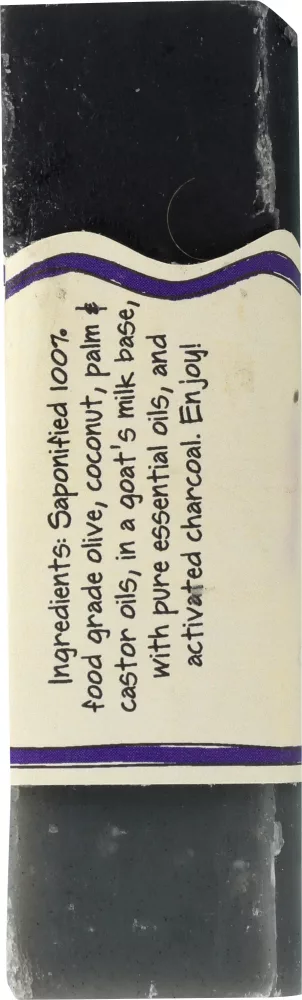 Ingredients: Saponified 100%
food grade olive, coconut, palm &
castor oils, in a goat's milk base,
with pure essential oils, and
activated charcoal. Enjoy!